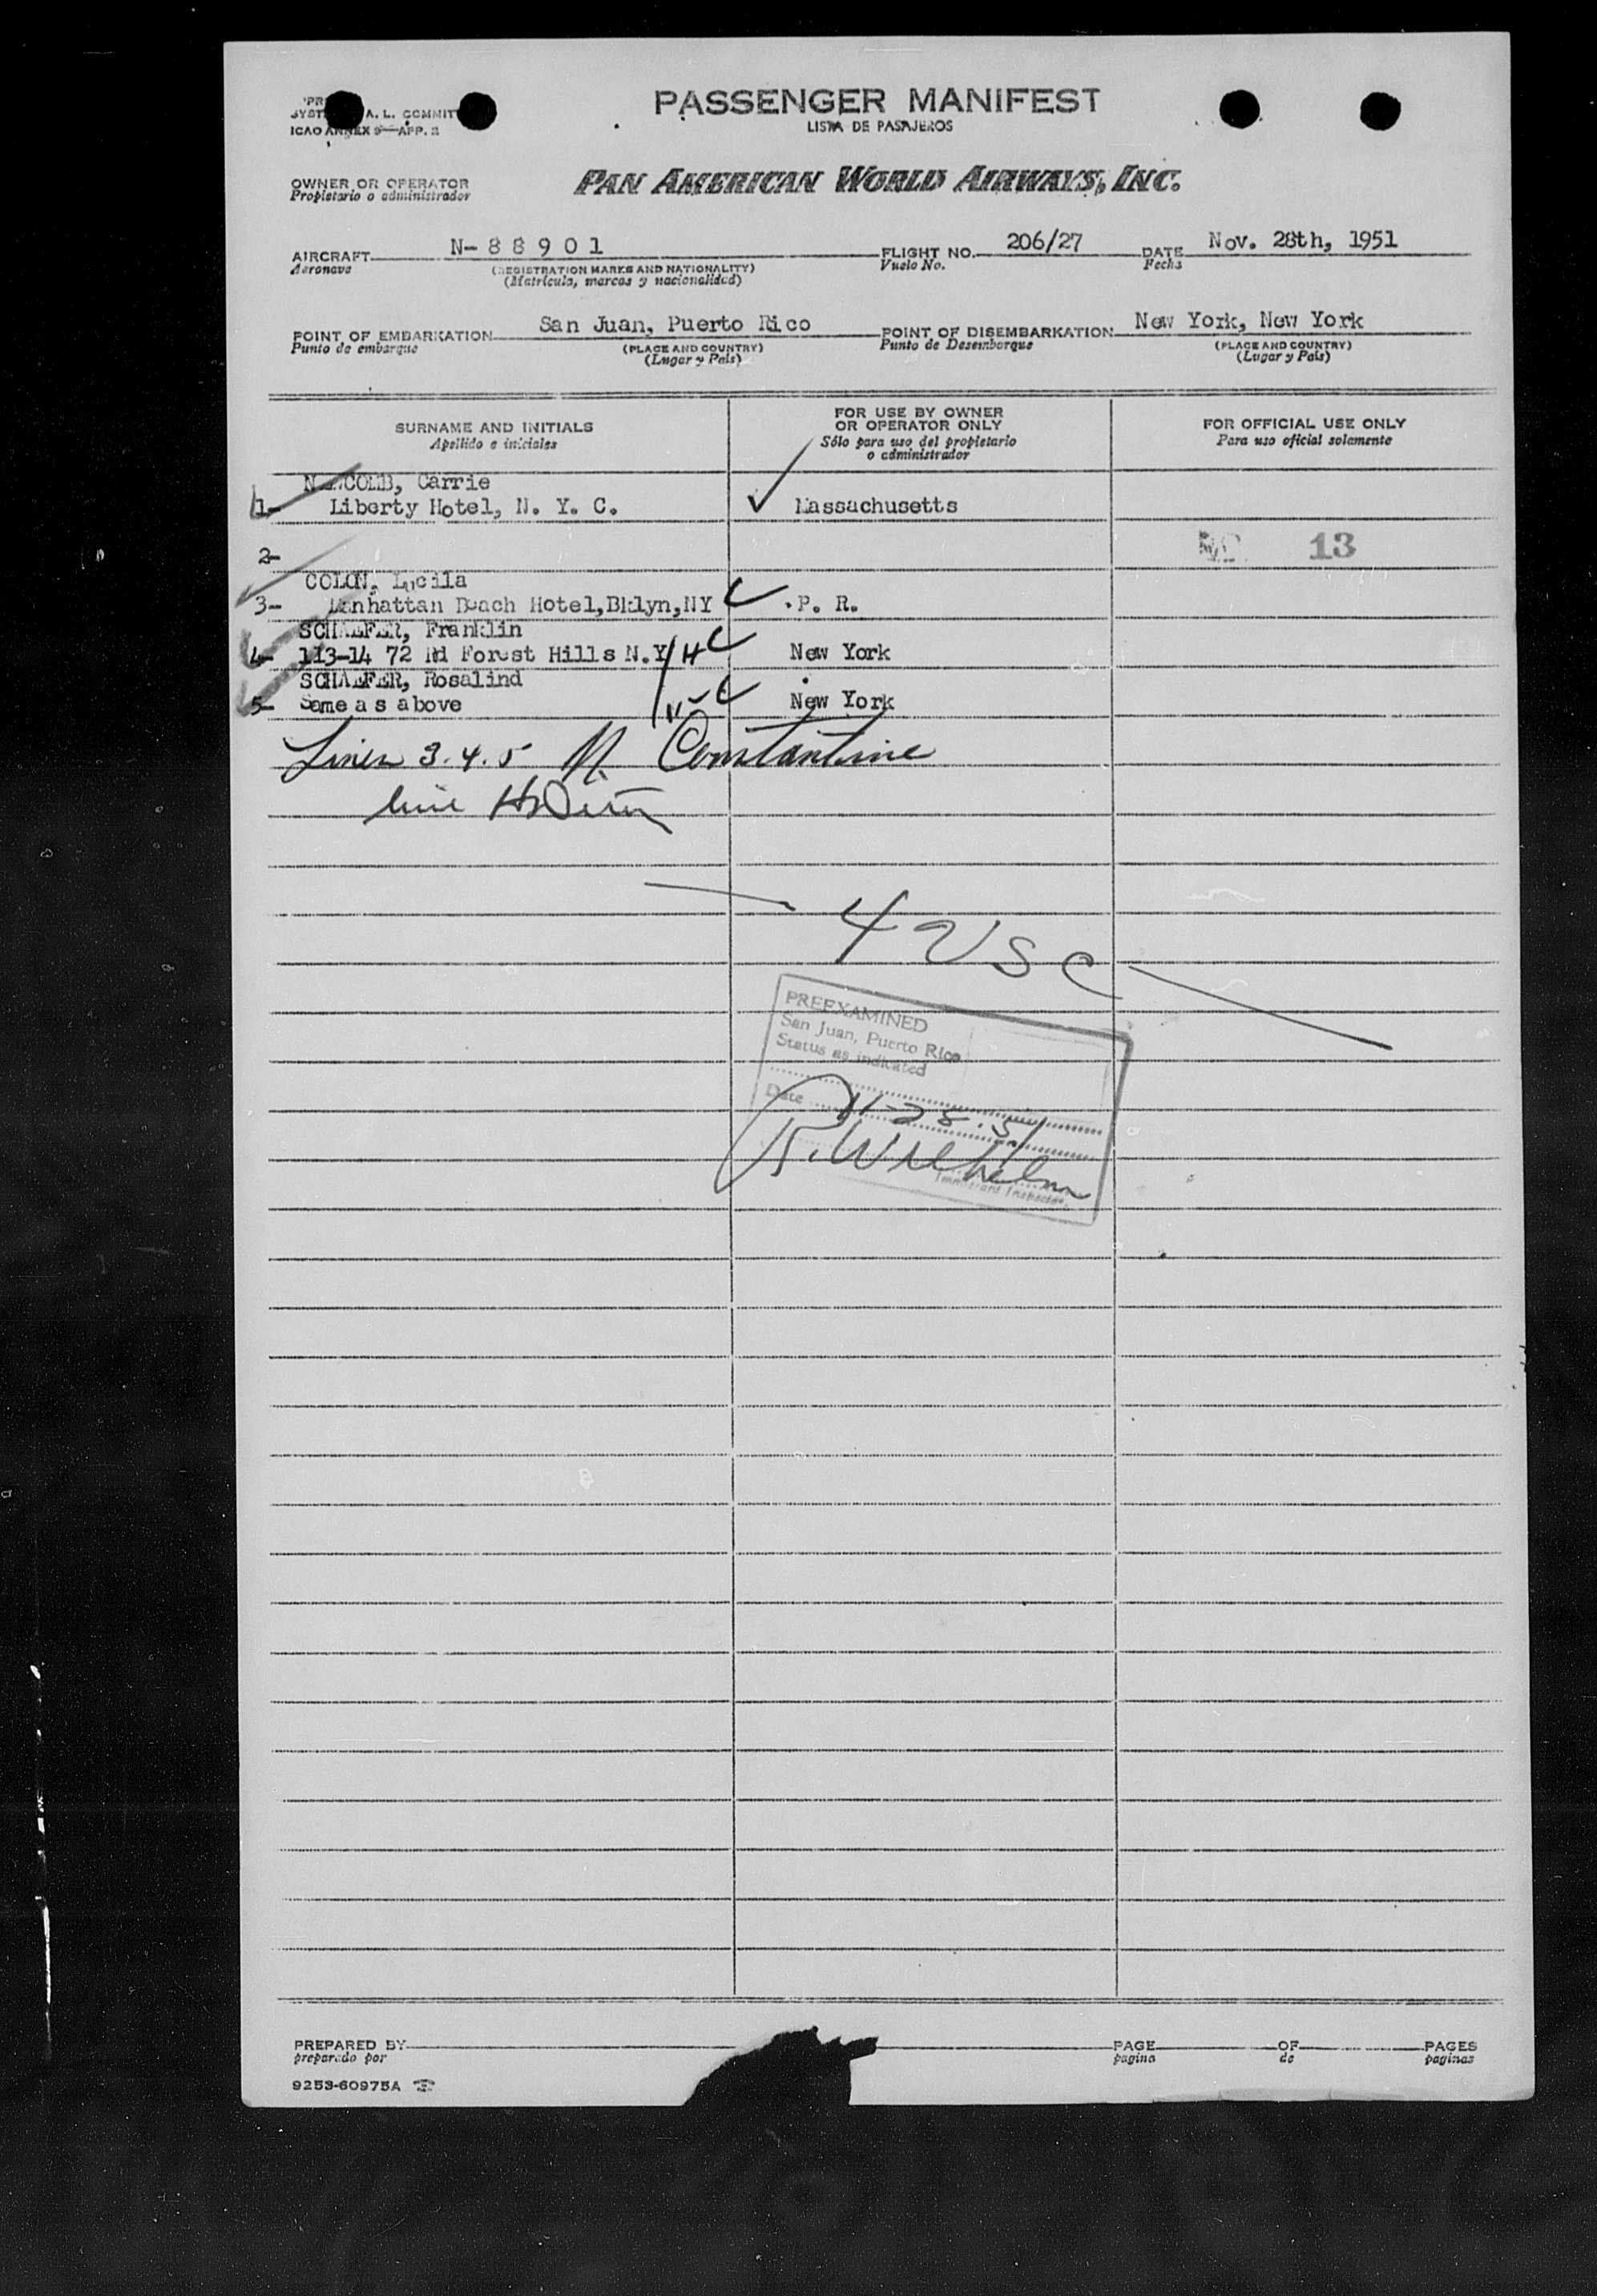 A. L. COMMIT
ICAO ANNEX 9—APP. 2
PASSENGER MANIFEST
LISTA DE PASAJEROS
OWNER OR OPERATOR
Propietario o administrador
PAN AMERICAN WORLD AIRWAYS, INC.
AIRCRAFT N-88901 FLIGHT NO. 206/27 DATE Nov. 28th, 1951
Aeronave Vuelo No. Fecha
(REGISTRATION MARKS AND NATIONALITY)
(Matrícula, marcas y nacionalidad)
POINT OF EMBARKATION San Juan, Puerto Rico POINT OF DISEMBARKATION New York, New York
Punto de embarque (PLACE AND COUNTRY) Punto de Desembarque (PLACE AND COUNTRY)
(Lugar y País) (Lugar y País)
SURNAME AND INITIALS
Apellido e iniciales
FOR USE BY OWNER
OR OPERATOR ONLY
Sólo para uso del propietario
o administrador
FOR OFFICIAL USE ONLY
Para uso oficial solamente
Carrie
1- Liberty Hotel, N. Y. C. Massachusetts
2- 13
COLON, Lucila
3- Manhattan Beach Hotel,Bklyn,NY P. R.
SCHAEFER, Franklin
4- 113-14 72 Rd Forest Hills N.Y New York
SCHAEFER, Rosalind
5- Same as above New York
Lines 3.4.5 N. Constantine
line
4 USC
PREEXAMINED
San Juan, Puerto Rico
Status as indicated
Date 11-28-51
R. Wilhelm
Immigrant Inspector
PREPARED BY PAGE OF PAGES
preparado por pagina de paginas
9253-60975A